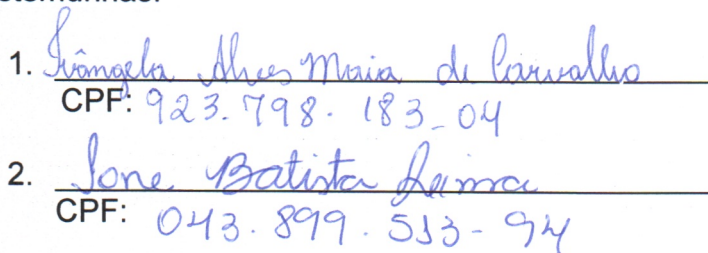 1. Ivângela Alves Maia de Carvalho
CPF: 923.798.183-04
2. Ione Batista
CPF: 043.899.513-94